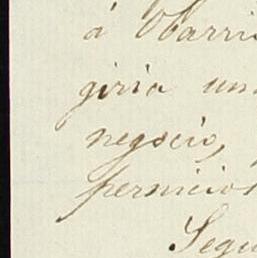 á Obarri
giria un
negocio,
pernicios
Segu